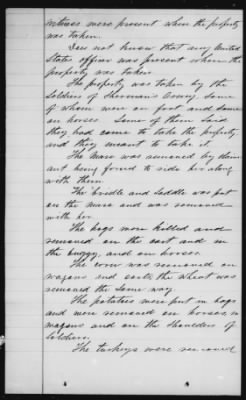 witness were present when the property
was taken.
I do not know that any United
States officer was present when the
property was taken
The property was taken by the
soldiers of Sherman's Army. Some
of whom were on foot and some
on horses. Some of them said
they had come to take the property
and they meant to take it.
The mare was removed by claim
ant being forced to ride her along
with them.
The bridle and saddle was put
on the mare and was removed
with her.
The hogs were killed and
removed on the cart and in
the buggy, and on horses.
The corn was removed on
wagons and carts, the wheat was
removed the same way
The potatoes were put in bags
and were removed on horses, in
wagons and on the shoulders of
soldiers.
The turkeys were removed